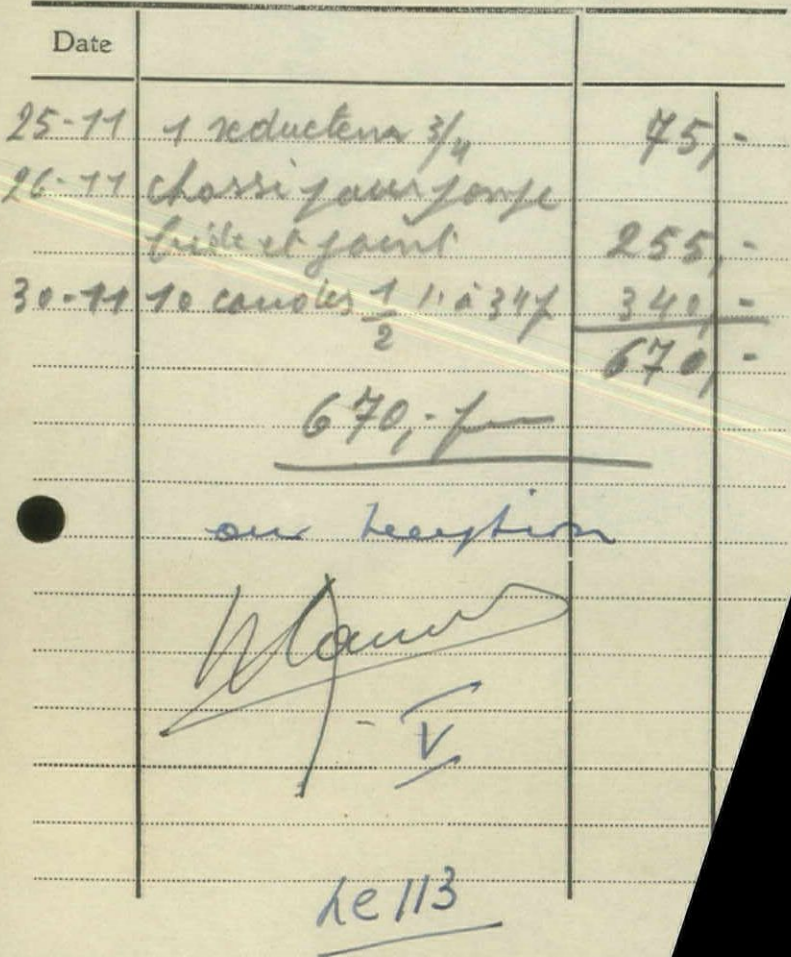 Date
25-11 1 reducteur 3/4 75,-
26-11 chassi pour pompe
bride et joint 255,-
30-11 10 coudes 1/2 " à 34 f 340,-
670,-
670,- f
our reception
V
he 113